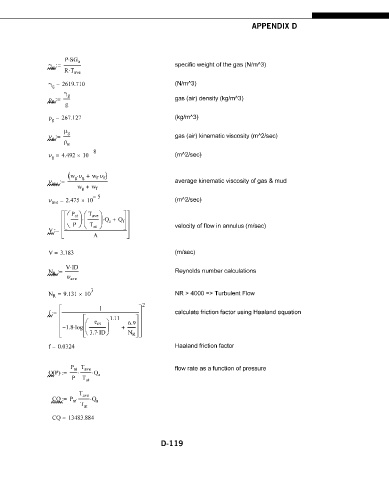 APPENDIX D
γg := P·SGg / R·Tave
specific weight of the gas (N/m^3)
γg = 2619.710
(N/m^3)
ρg := γg / g
gas (air) density (kg/m^3)
ρg = 267.127
(kg/m^3)
gas (air) kinematic viscosity (m^2/sec)
υg = 4.492 × 10 - 8
(m^2/sec)
υave := (wg·υg + wf·υf) / wg + wf
average kinematic viscosity of gas & mud
υave = 2.475 × 10 - 5
(m^2/sec)
V := [[(Pst / P)·(Tave / Tst)·Qs + Qf] / A]
velocity of flow in annulus (m/sec)
V = 3.183
(m/sec)
NR := V·ID / υave
Reynolds number calculations
NR = 9.131 × 10 3
NR > 4000 => Turbulent Flow
f := [1 / -1.8·log[(eint / 3.7·ID) 1.11 + 6.9 / NR]] 2
calculate friction factor using Haaland equation
f = 0.0324
Haaland friction factor
Q(P) := Pst / P · Tave / Tst · Qs
flow rate as a function of pressure
CQ := Pst · Tave / Tst · Qs
CQ = 13483.884
D-119